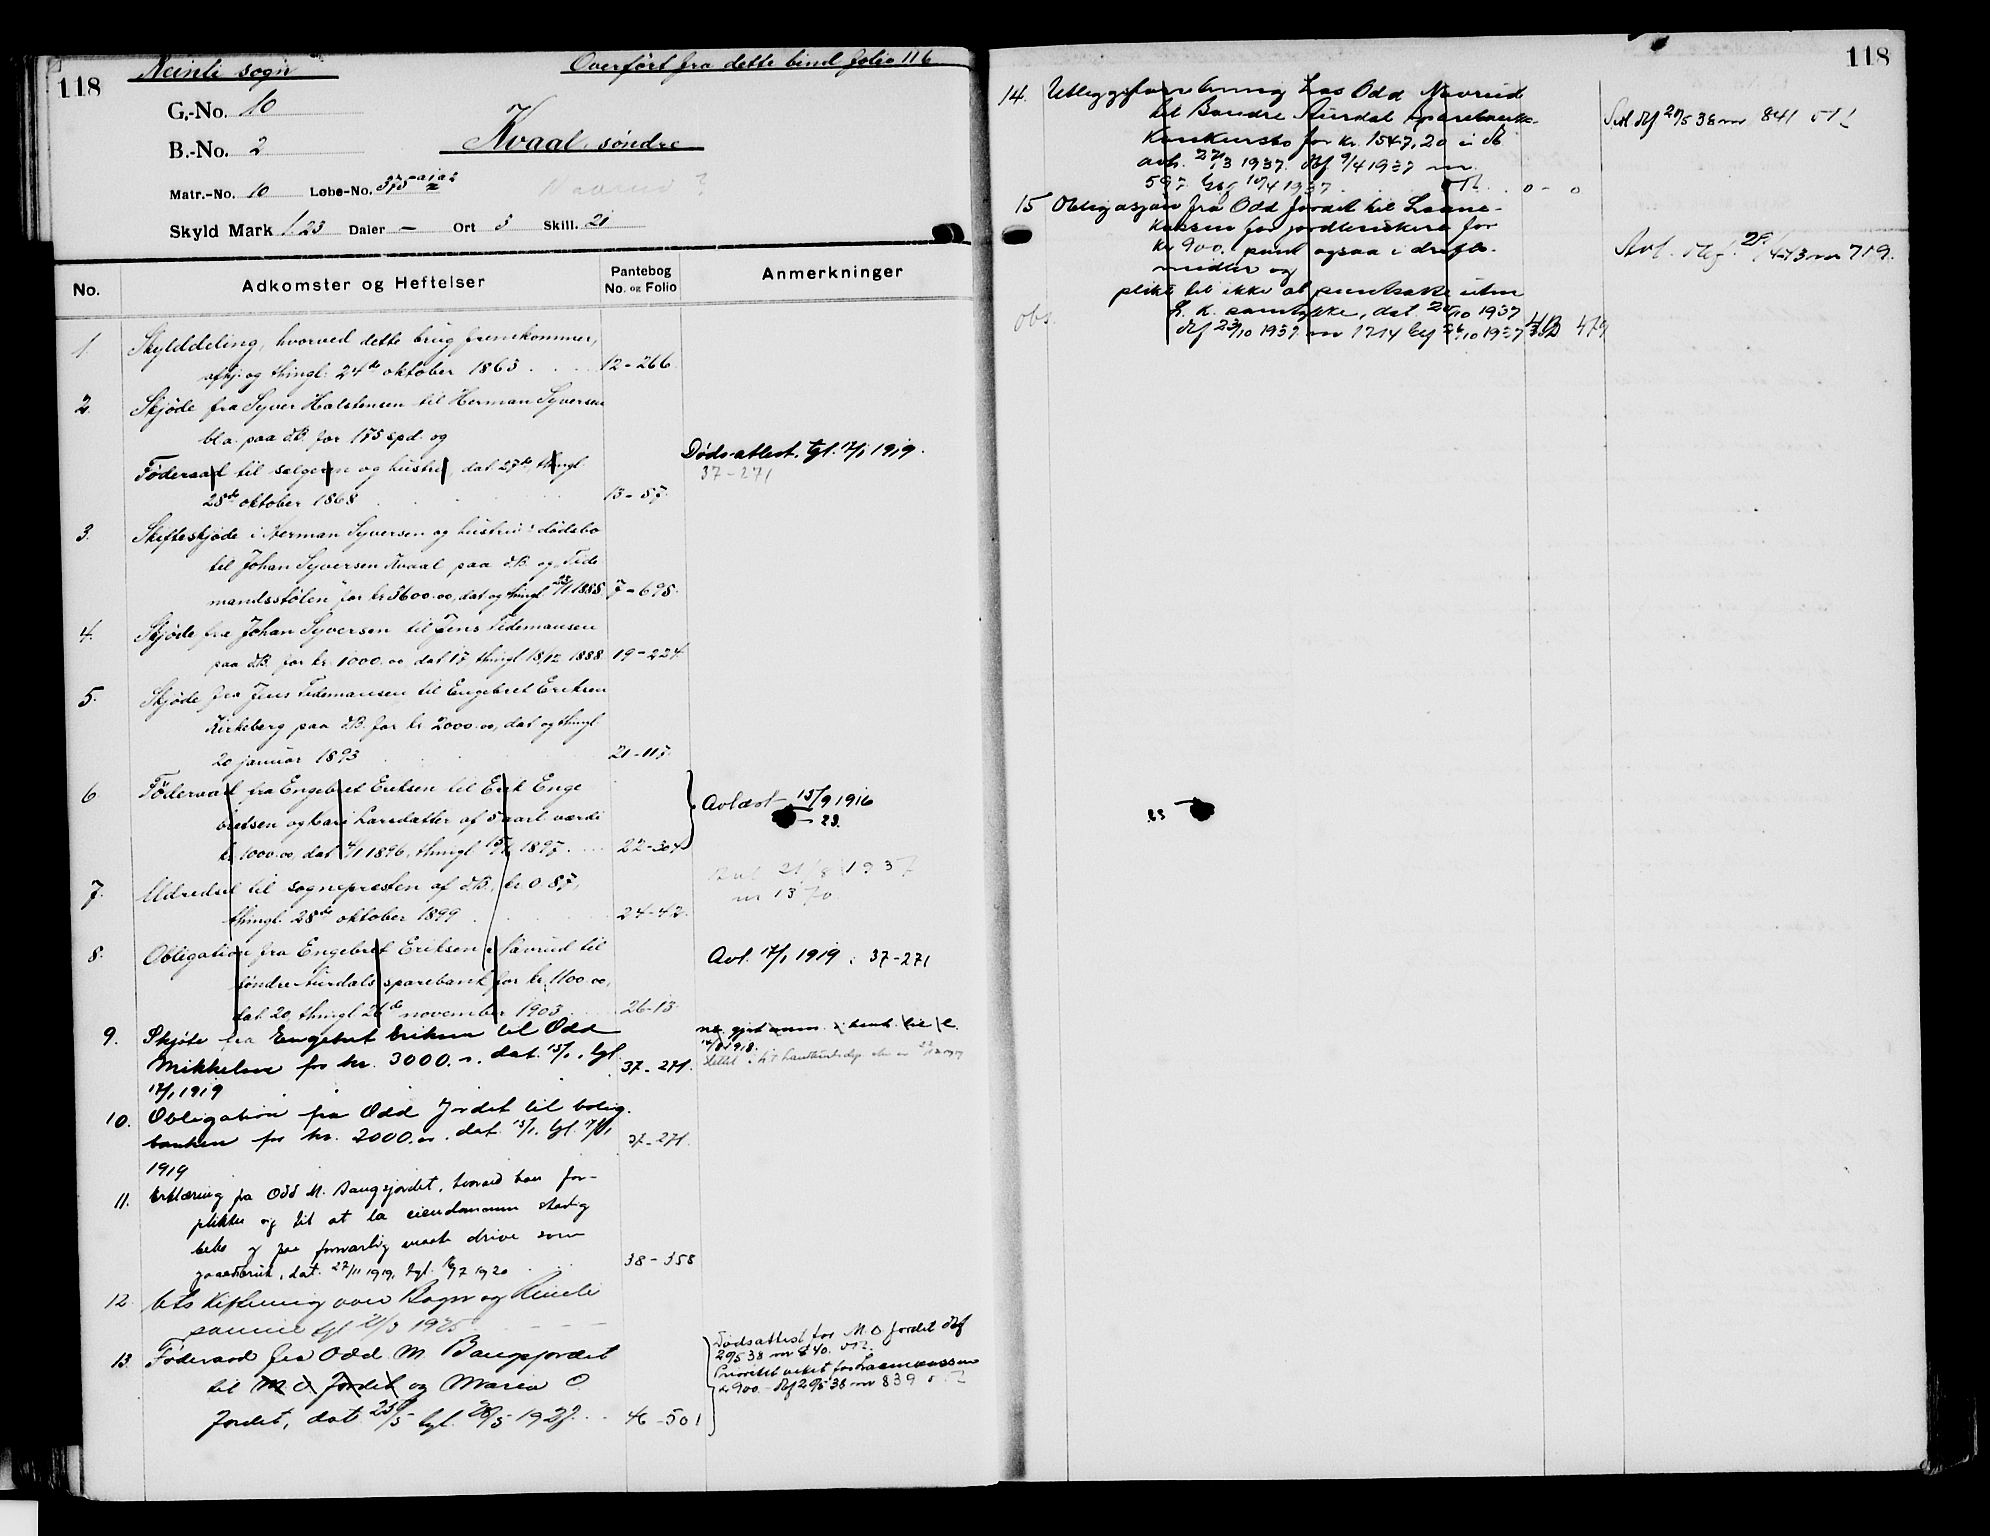 118
Reinli sogn
Overført fra dette bind folio 116
G.-No. 10
B.-No. 2
Kvaal søndre
Matr.-No. 10 Løbe-No.
Skyld Mark 1,23 Daler — Ort 3 Skill. 21
No.
Adkomster og Heftelser
Pantebog No. og Folio
Anmerkninger
1 Skylddeling, hvorved dette brug fremkommer,
afhj. og thingl. 24de oktober 1865 12-266
2. Skjøde fra Syver Halstensen til Herman Syversen
bl.a. paa d.B. for 175 spd. og
Føderaad til sælgeren og hustru, dat 27de, thingl.
28de oktober 1868 13-87.
Dødsattest. tgl. 17/1 1919.
37-271
3. Skifteskjøde i Herman Syversen og hustrus dødsbo
til Johan Syversen Kvaal paa d.B. og Tide
mandsstølen for kr 3600.00, dat og thingl 1888 7-698.
4. Skjøde fra Johan Syversen til Jens Tidemansen
paa d.B. for kr. 1000.00, dat 17, thingl 18/12 1888 19-224
5. Skjøde fra Jens Tidemansen til Engebret Eriksen
Kirkeberg paa d.B. for kr. 2000.00, dat og thingl.
20 januar 1893 21-115.
6. Føderaad fra Engebret Eriksen til Erik Enge
bretsen og Kari Larsdatter af 5 aarl. værdi
kr. 1000.00, dat 1896, thingl. 1897 22-304
Avlæst 15/9 1916
7. Udredsel til sognepresten af d.B., kr. 0.87,
thingl. 28de oktober 1899 24-42.
Avl 21/8 1937
nr 1370
8. Obligation fra Engebret Eriksen Navrud til
søndre Aurdals sparebank for kr. 1100.00,
dat. 20, thingl 26de november 1903 26-13
Avl. 17/1 1919. 37-271
9. Skjøte fra Engebret Eriksen til Odd
Mikkelsen for kr. 3000.00. dat. 15/1, tgl.
17/1 1919 37-271.
10. Obligation fra Odd Jordet til bolig-
banken for kr. 2000.00. dat. 15/1. tgl. 17/1
1919 37-271.
11. Erklæring fra Odd M. Baugsjordet, hvorved han for-
plikter sig til at la eiendommen stadig
bebo og paa forsvarlig maate drive som
gaardsbruk, dat. 27/11 1919, tgl. 7 1920 38-358
12. Utskiftning over Bagn og Reinli
sameie tgl 11/3 1925
13. Føderaad fra Odd M. Baugsjordet
til M O Jordet og Maria O.
Jordet, dat 23/5 tgl. 28/5 1927. 46-501
Dødsattest for M. O Jordet dbf
29 5 38 nr 840.
Prioritet veket for Laanekassen
kr 900.- dbf 29 5 38 nr 839
118
14. Utleggsforretning hos Odd Navrud
til Søndre Aurdal sparebanks
konkursbo for kr. 1547,20 i d B
avh. 27/3 1937. dbf 9/4 1937 nr.
597. tgl 10/4 1937
Slet dbf 29/5 38 nr 841
15 Obligasjon fra Odd Jordet til Laane-
kassen for jordbrukere for
kr 900. pant ogsaa i drifts-
midler og
plikt til ikke at pantsætte uten
L. K. samtykke, dat. 20/10 1937
dbf 23/10 1937. nr 1714 tgl 26/10 1937 479
obs.
Avl. dbf. 29/4-43 nr 719.